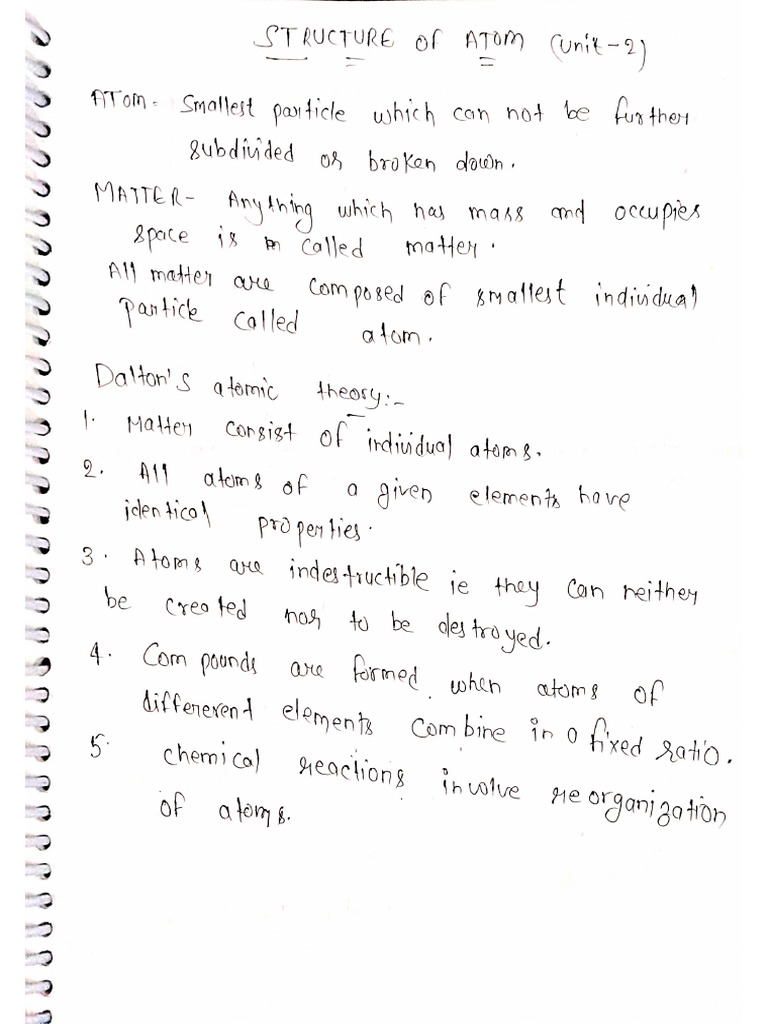 STRUCTURE OF ATOM (Unit-2)
ATOM- Smallest particle which can not be further
subdivided or broken down.
MATTER- Anything which has mass and occupies
space is called matter.
All matter are composed of smallest individual
particle called atom.
Dalton's atomic theory:-
1. Matter consist of individual atoms.
2. All atoms of a given elements have
identical properties.
3. Atoms are indestructible ie they can neither
be created nor to be destroyed.
4. Compounds are formed when atoms of
differerent elements combine in a fixed ratio.
5. chemical reactions involve reorganization
of atoms.